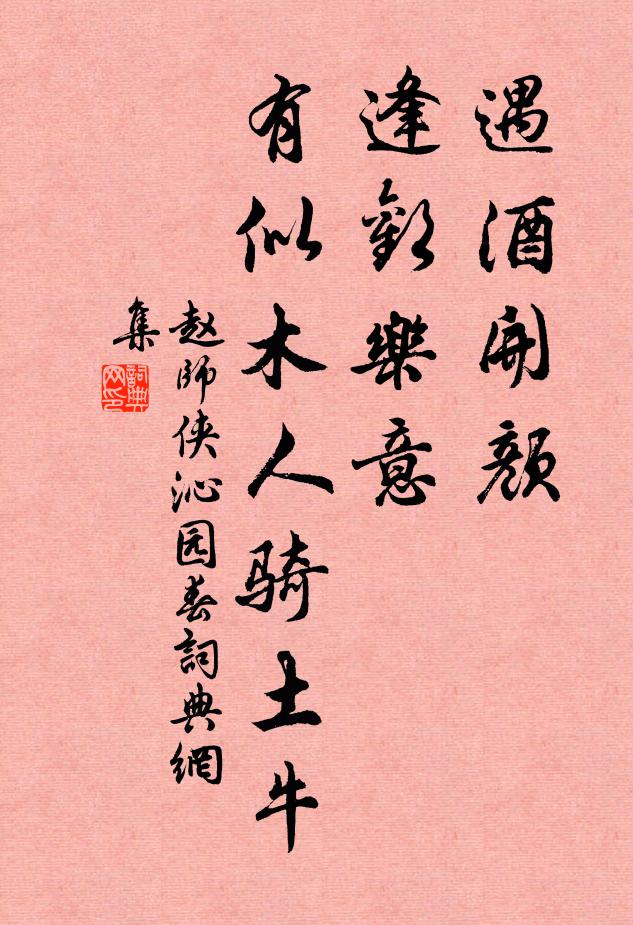 遇酒開顏
逢歡樂意
有似木人骑土牛
赵師侠沁园春詞典網
集
詞典网印